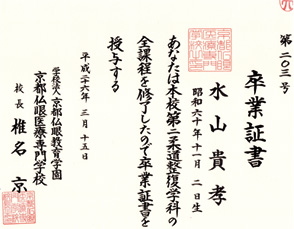 第二〇三号
卒業証書
水山貴孝
昭和六十年十一月二日生
あなたは本校第二柔道整復学科の
全課程を修了したので卒業証書を
授与する
平成二十六年三月十五日
学校法人京都仏眼教育学園
京都仏眼医療専門学校
校長 椎名京